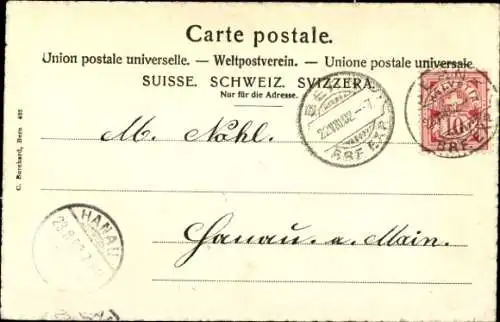 Carte postale.
Union postale universelle. — Weltpostverein. — Unione postale universale.
SUISSE. SCHWEIZ. SVIZZERA.
Nur für die Adresse.
BRF EXP
10
BRF EXP
C. Burckhard, Bern
M. Nohl.
HANAU
Hanau. a. Main.